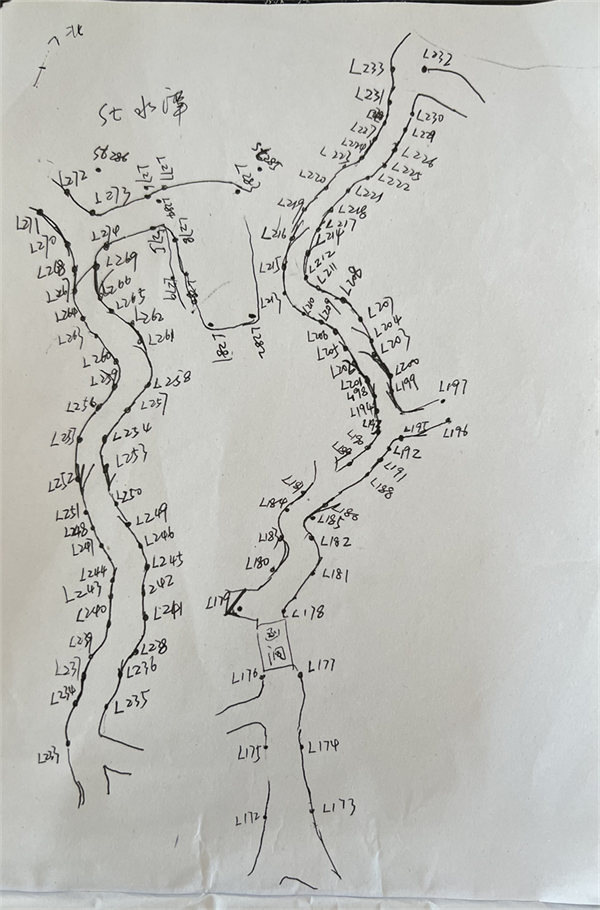 北
St 水潭
L233
L232
L231
L230
L227
L229
L224
L226
L223
L225
L220
L222
L221
L219
L218
L217
L216
L214
L215
L212
L211
L213
L210
L209
L208
L207
L206
L204
L205
L203
L202
L200
L201
L199
L198
L197
L194
L196
L195
L193
L192
L191
L188
L187
L186
L184
L185
L183
L182
L180
L181
L179
L178
闸
L176
L177
L175
L174
L172
L173
St286
St285
L272
L273
L276
L277
L284
L283
L275
L278
L279
L280
L281
L282
L271
L270
L274
L268
L269
L267
L266
L264
L265
L263
L262
L261
L260
L259
L258
L256
L257
L255
L254
L252
L253
L251
L250
L248
L249
L247
L246
L244
L245
L243
L242
L240
L241
L239
L238
L237
L236
L234
L235
L233